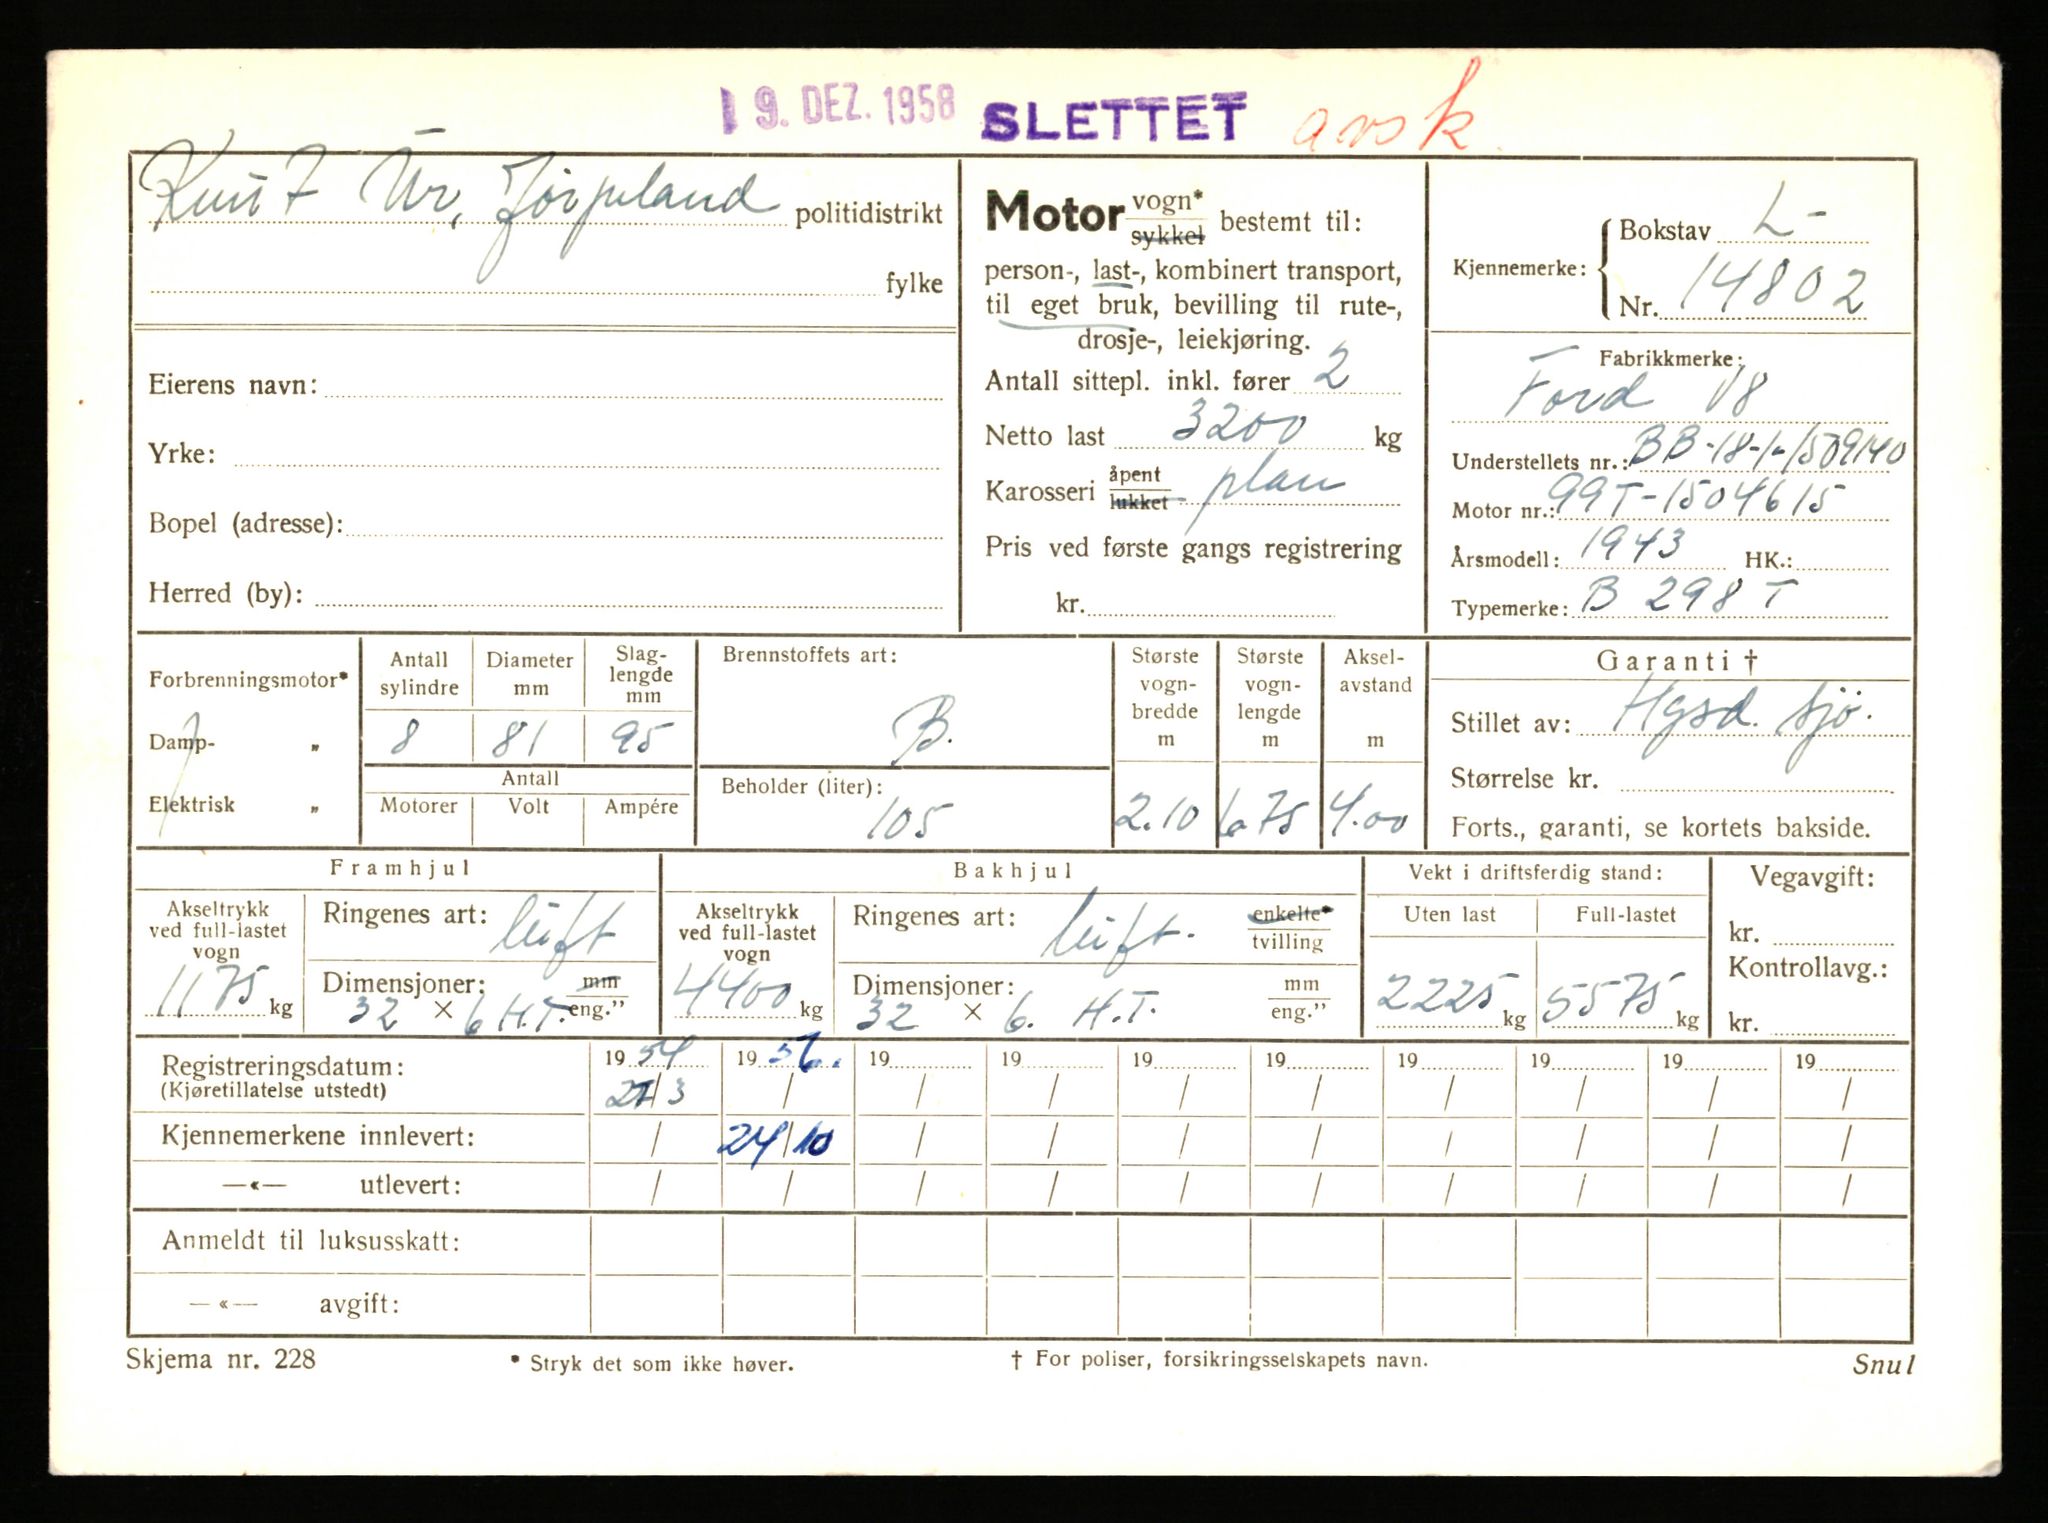 19. DEZ. 1958 SLETTET avsk.
Knut Ur, Jørpeland politidistrikt
fylke
Eierens navn:
Yrke:
Bopel (adresse):
Herred (by):
Motor vogn* sykkel bestemt til:
person-, last-, kombinert transport,
til eget bruk, bevilling til rute-,
drosje-, leiekjøring.
Antall sittepl. inkl. fører 2
Netto last 3200 kg
Karosseri åpent lukket plan
Pris ved første gangs registrering
kr.
Kjennemerke: Bokstav L-
Nr. 14802
Fabrikkmerke:
Ford V8
Understellets nr.: BB-18-1-1509140
Motor nr.: 99T-1504615
Årsmodell: 1943 HK.:
Typemerke: B 298 T
Forbrenningsmotor*
Damp- „
Elektrisk „
Antall sylindre Diameter mm Slag-lengde mm
8 81 95
Antall
Motorer Volt Ampére
Brennstoffets art:
B.
Beholder (liter):
105
Største vogn-bredde m Største vogn-lengde m Aksel-avstand m
2.10 6.75 4.00
Garanti †
Stillet av: Hgsd. Sjø.
Størrelse kr.
Forts., garanti, se kortets bakside.
Framhjul
Akseltrykk ved full-lastet vogn
1175 kg
Ringenes art: luft
Dimensjoner: mm
32 × 6 H.T. eng.”
Bakhjul
Akseltrykk ved full-lastet vogn
4400 kg
Ringenes art: luft. enkelte* tvilling
Dimensjoner: mm
32 × 6. H.T. eng.”
Vekt i driftsferdig stand:
Uten last Full-lastet
2225 kg 5575 kg
Vegavgift:
kr.
Kontrollavg.:
kr.
Registreringsdatum: 1954 1956. 19 19 19 19 19 19 19 19
(Kjøretillatelse utstedt) 27/3 / / / / / / / / /
Kjennemerkene innlevert: / 24/10 / / / / / / / /
—«— utlevert: / / / / / / / / / /
Anmeldt til luksusskatt:
—«— avgift:
Skjema nr. 228 * Stryk det som ikke høver. † For poliser, forsikringsselskapets navn. Snul